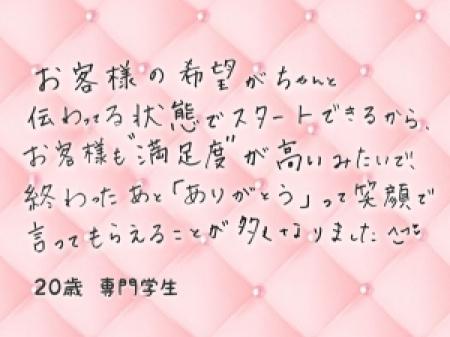 お客様の希望がちゃんと
伝わってる状態でスタートできるから、
お客様も"満足度"が高いみたいで、
終わったあと「ありがとう」って笑顔で
言ってもらえることが多くなりました^^
20歳 専門学生